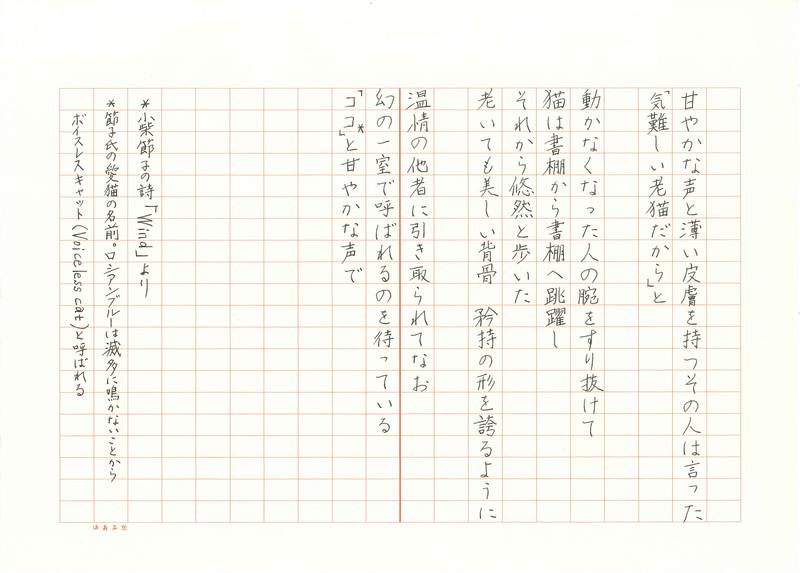 甘やかな声と薄い皮膚を持つその人は言った
「気難しい老猫だから」と
動かなくなった人の腕をすり抜けて
猫は書棚から書棚へ跳躍し
それから悠然と歩いた
老いても美しい背骨　矜持の形を誇るように
温情の他者に引き取られてなお
幻の一室で呼ばれるのを待っている
「ココ*」と甘やかな声で
*小柴節子の詩「Wind」より
*節子氏の愛猫の名前。ロシアンブルーは滅多に鳴かないことから
ボイスレスキャット(Voiceless cat)と呼ばれる